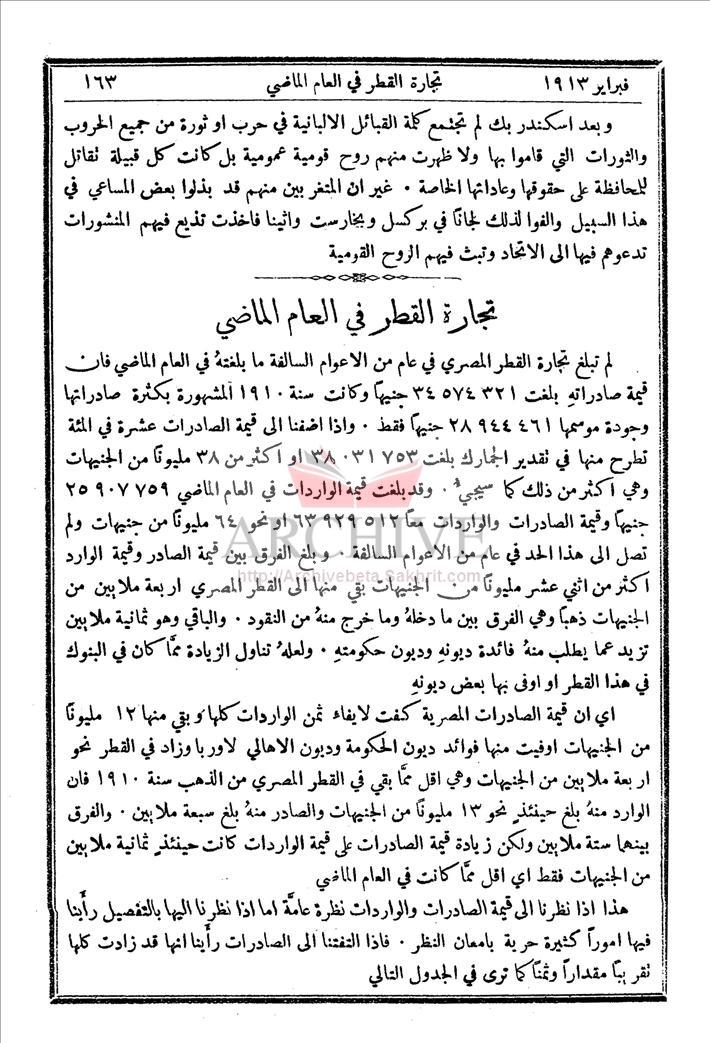 فبراير ١٩١٣ تجارة القطر في العام الماضي ١٦٣
وبعد اسكندر بك لم تجتمع كلمة القبائل الالبانية في حرب او ثورة من جميع الحروب
والثورات التي قاموا بها ولا ظهرت منهم روح قومية عمومية بل كانت كل قبيلة تقاتل
للمحافظة على حقوقها وعاداتها الخاصة ٠ غير ان المتغربين منهم قد بذلوا بعض المساعي في
هذا السبيل والفوا لذلك لجاناً في بركسل وبخارست واثينا فاخذت تذيع فيهم المنشورات
تدعوهم فيها الى الاتحاد وتبث فيهم الروح القومية
تجارة القطر في العام الماضي
لم تبلغ تجارة القطر المصري في عام من الاعوام السالفة ما بلغتهُ في العام الماضي فان
قيمة صادراتهِ بلغت ٣٤ ٥٧٤ ٣٢١ جنيهاً وكانت سنة ١٩١٠ المشهورة بكثرة صادراتها
وجودة موسمها ٢٨ ٩٤٤ ٤٦١ جنيهاً فقط ٠ واذا اضفنا الى قيمة الصادرات عشرة في المئة
تطرح منها في تقدير الجمارك بلغت ٣٨ ٠٣١ ٧٥٣ او اكثر من ٣٨ مليوناً من الجنيهات
وهي اكثر من ذلك كما سيجيءُ ٠ وقد بلغت قيمة الواردات في العام الماضي ٢٥ ٩٠٧ ٧٥٩
جنيهاً وقيمة الصادرات والواردات معاً ٦٣ ٩٢٩ ٥١٢ او نحو ٦٤ مليوناً من جنيهات ولم
تصل الى هذا الحد في عام من الاعوام السالفة ٠ وبلغ الفرق بين قيمة الصادر وقيمة الوارد
اكثر من اثني عشر مليوناً من الجنيهات بقي منها الى القطر المصري اربعة ملايين من
الجنيهات ذهباً وهي الفرق بين ما دخلهُ وما خرج منهُ من النقود ٠ والباقي وهو ثمانية ملايين
تزيد عما يطلب منهُ فائدة ديونهِ وديون حكومتهِ ٠ ولعلهُ تناول الزيادة ممَّا كان في البنوك
في هذا القطر او اوفى بها بعض ديونهِ
اي ان قيمة الصادرات المصرية كفت لايفاء ثمن الواردات كلها وبقي منها ١٢ مليوناً
من الجنيهات اوفيت منها فوائد ديون الحكومة وديون الاهالي لاوربا وزاد في القطر نحو
اربعة ملايين من الجنيهات وهي اقل ممَّا بقي في القطر المصري من الذهب سنة ١٩١٠ فان
الوارد منهُ بلغ حينئذٍ نحو ١٣ مليوناً من الجنيهات والصادر منهُ بلغ سبعة ملايين ٠ والفرق
بينهما ستة ملايين ولكن زيادة قيمة الصادرات على قيمة الواردات كانت حينئذٍ ثمانية ملايين
من الجنيهات فقط اي اقل ممَّا كانت في العام الماضي
هذا اذا نظرنا الى قيمة الصادرات والواردات نظرة عامَّة اما اذا نظرنا اليها بالتفصيل رأَينا
فيها اموراً كثيرة حرية بامعان النظر ٠ فاذا التفتنا الى الصادرات رأَينا انها قد زادت كلها
تقريباً مقداراً وثمناً كما ترى في الجدول التالي
ARCHIVE
http://Archivebeta.Sakhrit.com